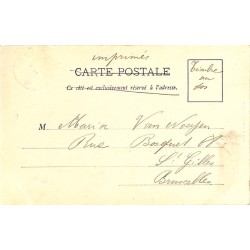 imprimés
CARTE POSTALE
Ce côté est exclusivement réservé à l'adresse.
Timbre
au
dos
M Maria Van
Rue Bosquet
St Gilles
Bruxelles